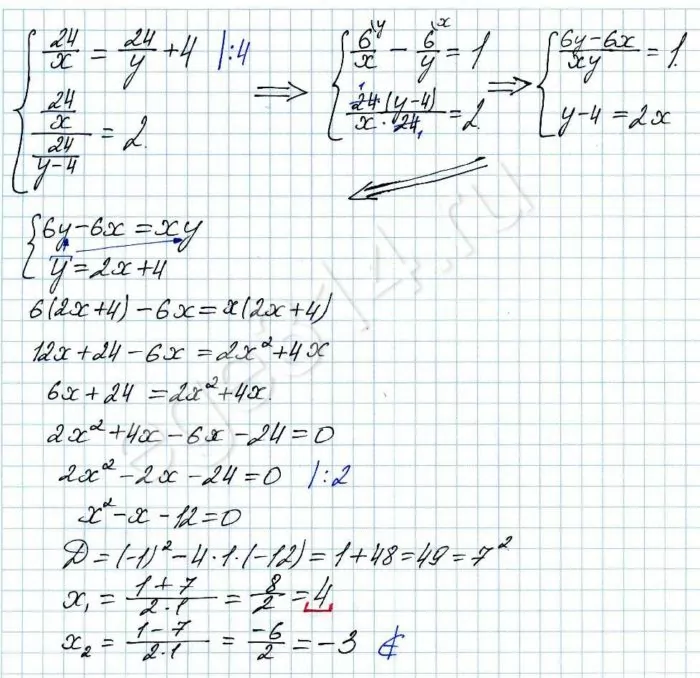 { 24/x = 24/y + 4 |:4
(24/x)/(24/(y-4)) = 2.
⟹
{ 6\y/x - 6\x/y = 1
24·(y-4)/(x·24) = 2.
⟹
{ (6y-6x)/(xy) = 1.
y-4 = 2x
{ 6y-6x = xy
y = 2x+4
6(2x+4)-6x = x(2x+4)
12x+24-6x = 2x²+4x
6x+24 = 2x²+4x.
2x²+4x-6x-24=0
2x²-2x-24=0 |:2
x²-x-12=0
D=(-1)²-4·1·(-12)=1+48=49=7²
x₁ = (1+7)/(2·1) = 8/2 = 4
x₂ = (1-7)/(2·1) = -6/2 = -3 ¢